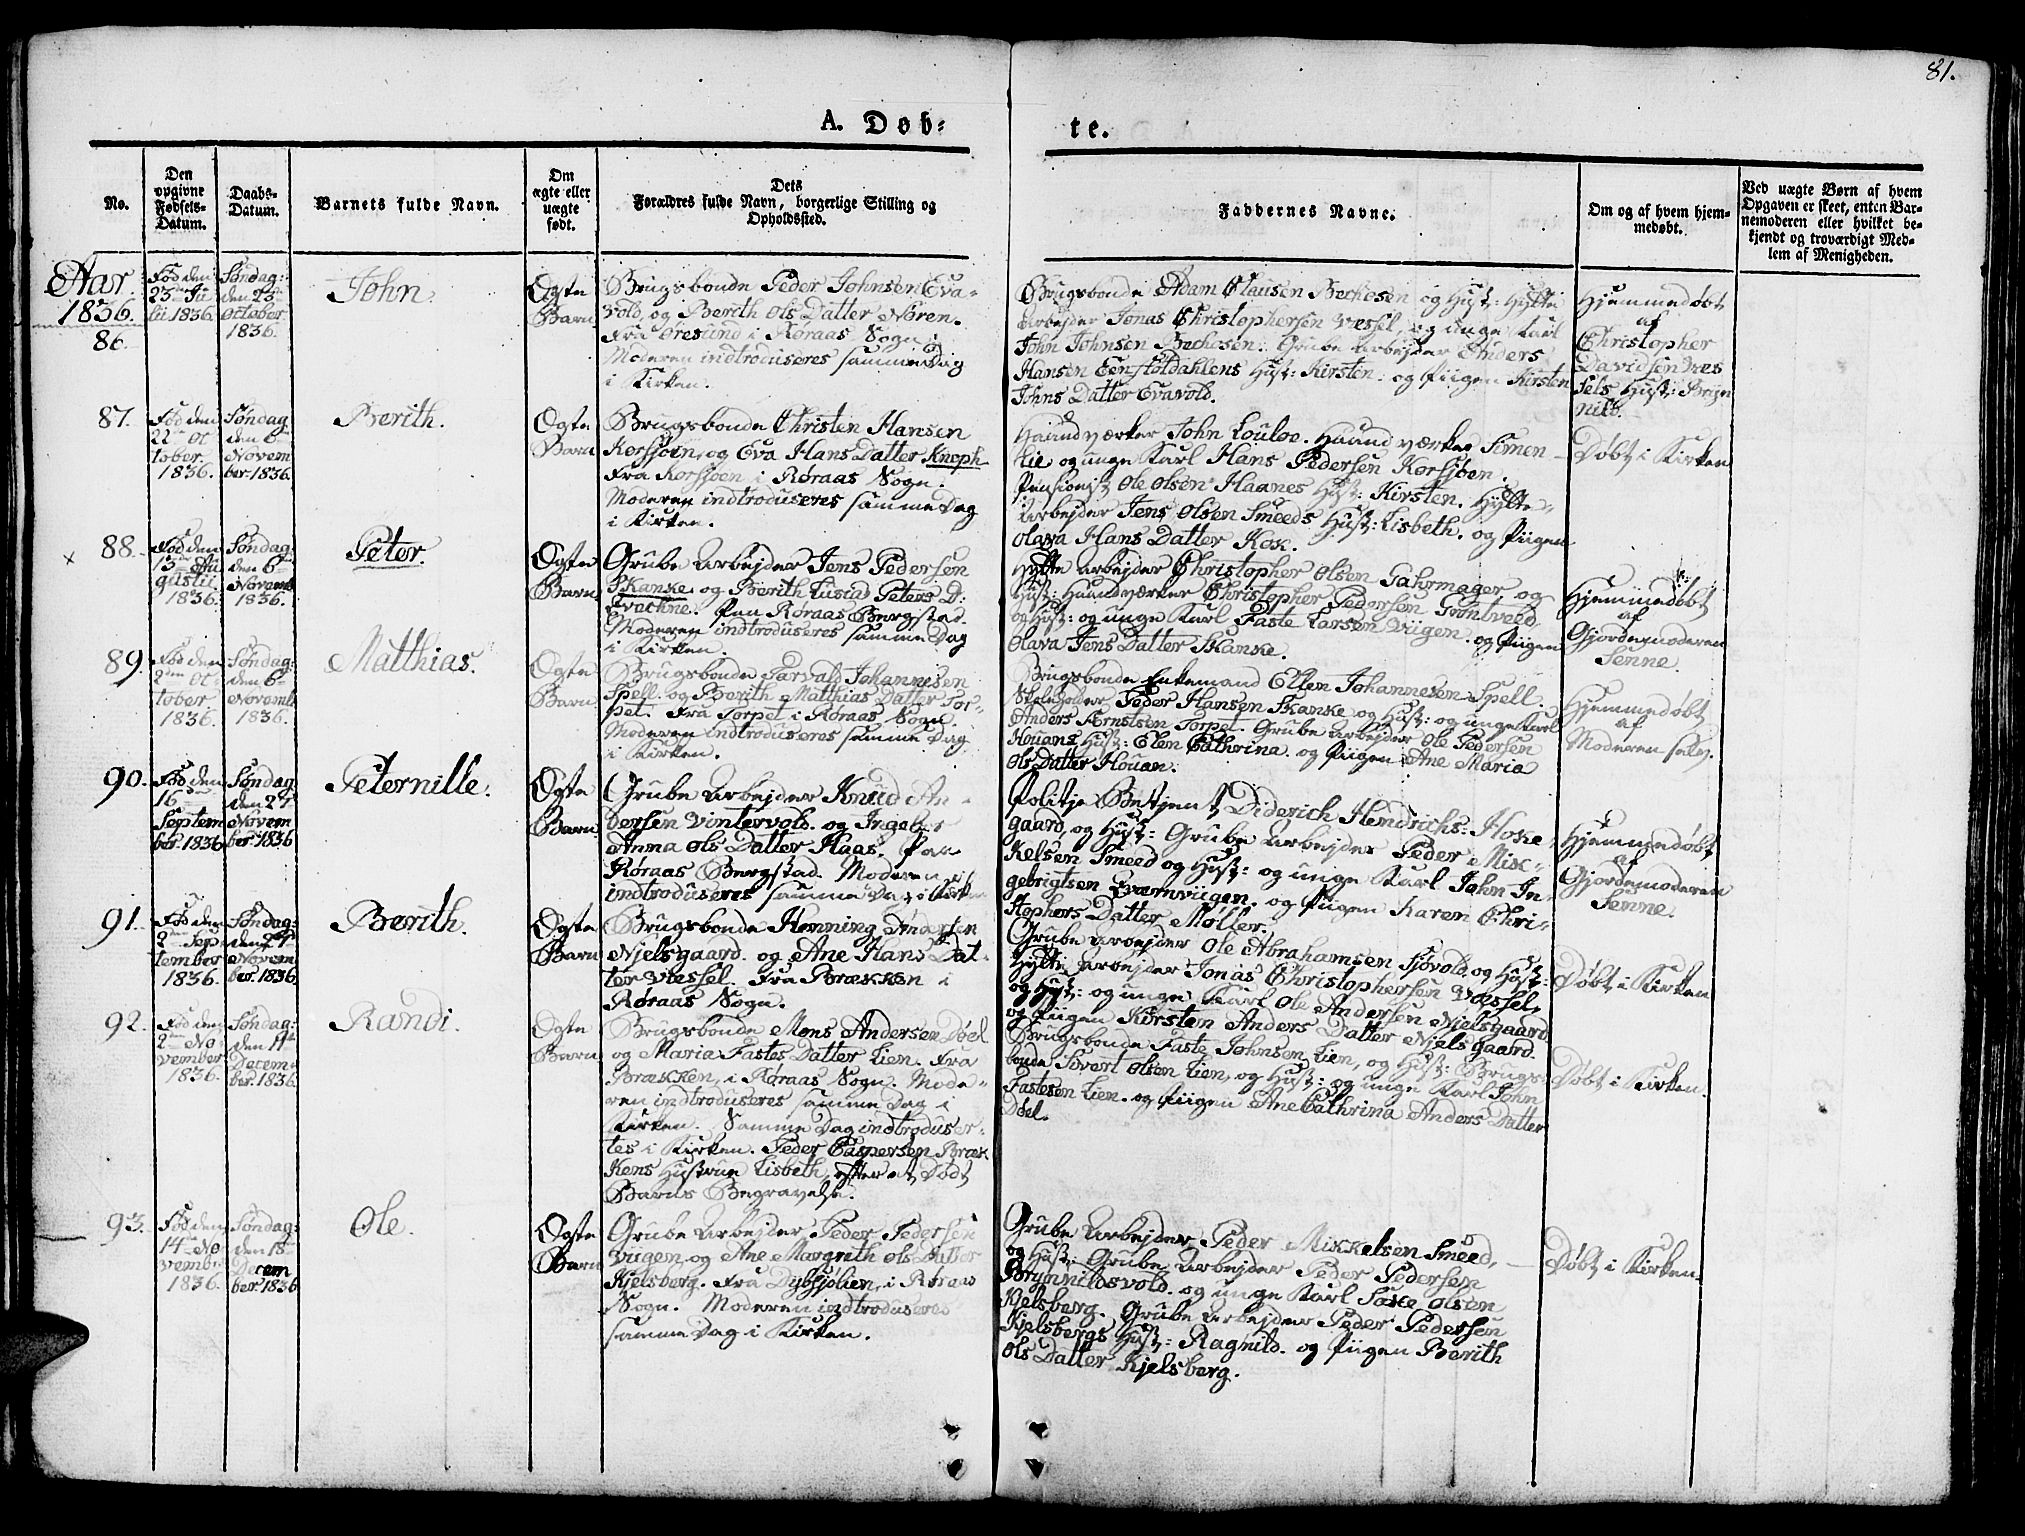 81.
A. Døb-
te.
No.
Den opgivne Fødsels-Datum.
Daabs-Datum.
Barnets fulde Navn.
Om ægte eller uægte født.
Dets Forældres fulde Navn, borgerlige Stilling og Opholdssted.
Faddernes Navne.
Om og af hvem hjem-medøbt.
Ved uægte Børn af hvem Opgaven er skeet, enten Bar-nemoderen eller hvilket be-kjendt og troværdigt Med-lem af Menigheden.
Aar.
1836.
86.
Fød den
23 Ju
lii 1836.
Søndag:
den 23
October
1836.
John.
Ægte
Barn
Brugsbonde Peder Johnsen Eva-
vold, og Berith Ols Datter Noren.
Fra Øresund i Røraas Sogn.
Moderen indtroduseres samme Dag
i Kirken.
Brugsbonde Adam Clausen Bechosen og Hust: Hytte
Arbejder Jonas Christophersen Væssel, og unge Karl
John Johnsen Bechosen. Grube Arbejder Anders
Hansen Eenstoldahlens Hust: Kirsten. og Piigen Kirsten
Johns Datter Evavold.
Hjemmedøbt
af
Christopher
Davidsen Væs
sels Hust: Brÿn
nild.
87.
Fød den
22 Oc
tober.
1836.
Søndag
den 6
Novem
ber. 1836.
Berith.
Ægte
Barn
Brugsbonde Christen Hansen
Korsjøen, og Eva Hans Datter Knoph
Fra Korssjøen i Røraas Sogn.
Moderen indtroduseres samme Dag
i Kirken.
Haandværker John Louloe. Haandværker Simen
Lie og unge Karl Hans Pedersen Korsjøen.
Pensionist Ole Olsen Haanes Hust: Kirsten. Hytte-
Arbejder Jens Olsen Smeeds Hust: Lisbeth. og Piigen
Olava Hans Datter Kok.
Døbt i Kirken
88.
Fød den
13 Au
gustii
1836.
Søndag:
den 6
Novemb
1836.
Peter.
Ægte
Barn
Grube Arbejder Jens Pedersen
Skanke og Berith Lusia Peters D.
Evachne. Paa Røraas Bergstad.
Moderen indtroduseres samme Dag
i Kirken.
Hytte Arbejder Christopher Olsen Gahrmager og
Hust: Haandværker Christopher Pedersen Tøntveed
og Hust: og unge Karl Faste Larsen Viigen. og Piigen
Olava Jens Datter Skanke.
Hjemmedøbt
af
Gjordemoderen
Senne.
89.
Fød den
2 Oc
tober
1836.
Søndag:
den 6
Novemb
1836.
Matthias.
Ægte
Barn
Brugsbonde Tarvald Johannesen
Spell. og Berith Matthias Datter Tor-
pet. Fra Torpet i Røraas Sogn.
Moderen indtroduseres samme Dag
i Kirken.
Brugsbonde Enkemand Ellen Johannesen Spell.
Skoleholder Peder Hansen Skanke og Hust: og unge Karl
Anders Ærnstsen Torpet. Grube Arbejder Ole Pedersen
Houans Hust: Elen Cathrina. og Piigen Ane Maria
Ols Datter Houan.
Hjemmedøbt
af
Moderen selv.
90.
Fød den
16
Septem
ber. 1836
Søndag
den 27
Novem
ber. 1836
Peternille.
Ægte
Barn
Grube Arbejder Knud An-
dersen Vintervold. og Ingebor
Anna Ols Datter Haas. Paa
Røraas Bergstad. Moderen
indtroduseres samme Dag i Kirken
Politje Betjent Diderich Hendrichs: Hoke
gaard, og Hust: Grube Arbejder Peder Mik-
kelsen Smeed og Hust: og unge Karl John In-
gebrigtsen Qværnviigen. og Piigen Karen Chri-
stophers Datter Møller.
Hjemmedøbt
af
Gjordemoderen
Senne.
91.
Fød den
2 Sep
tember
1836.
Søndag:
den 27
Novem
ber. 1836.
Berith.
Ægte
Barn
Brugsbonde Henning Imarten
Njelsgaard. og Ane Hans Dat-
ter Væssel. Fra Brækken i
Røraas Sogn.
Grube Arbejder Ole Abrahamsen Sjøvold. og Hust:
Hytte Arbejder Jonas Christophersen Væssel,
og Hust: og unge Karl Ole Andersen Njelsgaard
og Piigen Kirsten Anders Datter Njelsgaard.
Døbt i Kirken
92.
Fød den
2 No
vember
1836.
Søndag:
den 11
Decem-
ber. 1836.
Randi.
Ægte
Barn
Brugsbonde Mons Andersen Døel
og Maria Fastes Datter Lien. Fra
Brækken, i Røraas Sogn. Mode-
ren indtroduseres samme Dag i
Kirken. Samme Dag indtroduser-
tes i Kirken. Peder Caspersen Bræk
kens Hustrue Lisbeth, efter et Dødt
Barns Begravelse.
Brugsbonde Faste Johnsen Lien, og Hust: Brugs-
bonde Sivert Olsen Lien, og Hust: og unge Karl John
Fastesen Lien. og Piigen Ane Cathrina Anders Datter
Døel.
Døbt i Kirken.
93.
Fød den
14 No
vemb
1836.
Søndag:
den 18
Decem
ber. 1836
Ole.
Ægte
Barn
Grube Arbejder Peder Pedersen
Viigen, og Ane Margrith Ols Datter
Kjelsberg. Fra Dybsjølien, i Røraas
Sogn. Moderen indtroduseres
samme Dag i Kirken.
Grube Arbejder Peder Mikkelsen Smeed,
og Hust: Grube Arbejder Peder Pedersen
Brynnildsvold. og unge Karl Sake Olsen
Kjelsberg. Grube Arbejder Peder Pedersen
Kjelsbergs Hust: Ragnild. og Piigen Berith
Ols Datter Kjelsberg.
Døbt i Kirken.